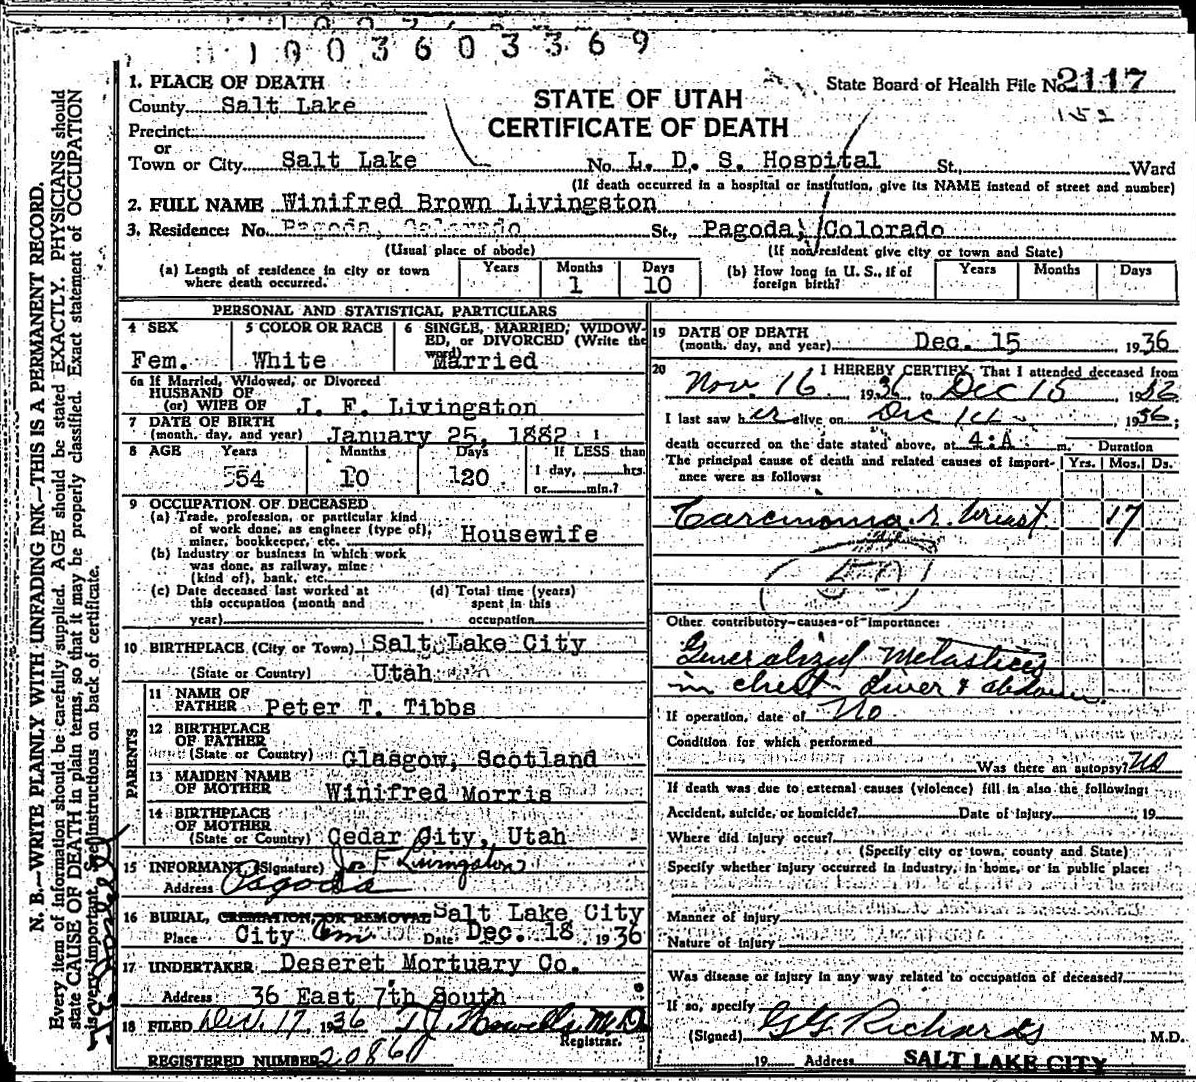 1003603369
1. PLACE OF DEATH
County Salt Lake
Precinct
or
Town or City Salt Lake
STATE OF UTAH
CERTIFICATE OF DEATH
State Board of Health File No. 2117
152
No. L. D. S. Hospital St., Ward
(If death occurred in a hospital or institution, give its NAME instead of street and number)
2. FULL NAME Winifred Brown Livingston
3. Residence: No. Pagoda, Colorado St., Pagoda, Colorado
(Usual place of abode) (If non-resident give city or town and State)
(a) Length of residence in city or town where death occurred. Years Months 1 Days 10
(b) How long in U. S., if of foreign birth? Years Months Days
PERSONAL AND STATISTICAL PARTICULARS
4 SEX Fem.
5 COLOR OR RACE White
6 SINGLE, MARRIED, WIDOWED, or DIVORCED (Write the word) Married
6a If Married, Widowed, or Divorced
HUSBAND OF
(or) WIFE OF J. F. Livingston
7 DATE OF BIRTH
(month, day, and year) January 25, 1882
8 AGE Years 54 Months 10 Days 20 If LESS than
1 day, hrs.
or min.?
9 OCCUPATION OF DECEASED
(a) Trade, profession, or particular kind
of work done, as engineer (type of),
miner, bookkeeper, etc. Housewife
(b) Industry or business in which work
was done, as railway, mine
(kind of), bank, etc.
(c) Date deceased last worked at
this occupation (month and
year)
(d) Total time (years)
spent in this
occupation
10 BIRTHPLACE (City or Town) Salt Lake City
(State or Country) Utah
PARENTS
11 NAME OF
FATHER Peter T. Tibbs
12 BIRTHPLACE
OF FATHER
(State or Country) Glasgow, Scotland
13 MAIDEN NAME
OF MOTHER Winifred Morris
14 BIRTHPLACE
OF MOTHER
(State or Country) Cedar City, Utah
15 INFORMANT (Signature) J. F. Livingston
Address Pagoda
16 BURIAL, CREMATION, OR REMOVAL Salt Lake City
Place City Cem Date Dec. 18, 1936
17 UNDERTAKER Deseret Mortuary Co.
Address 36 East 7th South
18 FILED Dec. 17, 1936 T. J. Howells M.D.
Registrar.
REGISTERED NUMBER 20860
19 DATE OF DEATH
(month, day, and year) Dec. 15, 1936
20 I HEREBY CERTIFY, That I attended deceased from
Nov. 16 1936 to Dec 15, 1936
I last saw her alive on Dec 14, 1936;
death occurred on the date stated above, at 4:A m. Duration
The principal cause of death and related causes of importance were as follows: Yrs. Mos. Ds.
Carcinoma r. breast 17
50
Other contributory causes of importance:
Generalized Metastices
in chest - liver & abdomen.
If operation, date of No
Condition for which performed
Was there an autopsy? No
If death was due to external causes (violence) fill in also the following:
Accident, suicide, or homicide? Date of injury, 19
Where did injury occur?
(Specify city or town, county and State)
Specify whether injury occurred in industry, in home, or in public place:
Manner of injury
Nature of injury
Was disease or injury in any way related to occupation of deceased?
If so, specify
(Signed) G. G. Richards M.D.
19 Address SALT LAKE CITY
N. B.—WRITE PLAINLY WITH UNFADING INK—THIS IS A PERMANENT RECORD.
Every item of information should be carefully supplied. AGE should be stated EXACTLY. PHYSICIANS should
state CAUSE OF DEATH in plain terms, so that it may be properly classified. Exact statement of OCCUPATION
is very important. See instructions on back of certificate.